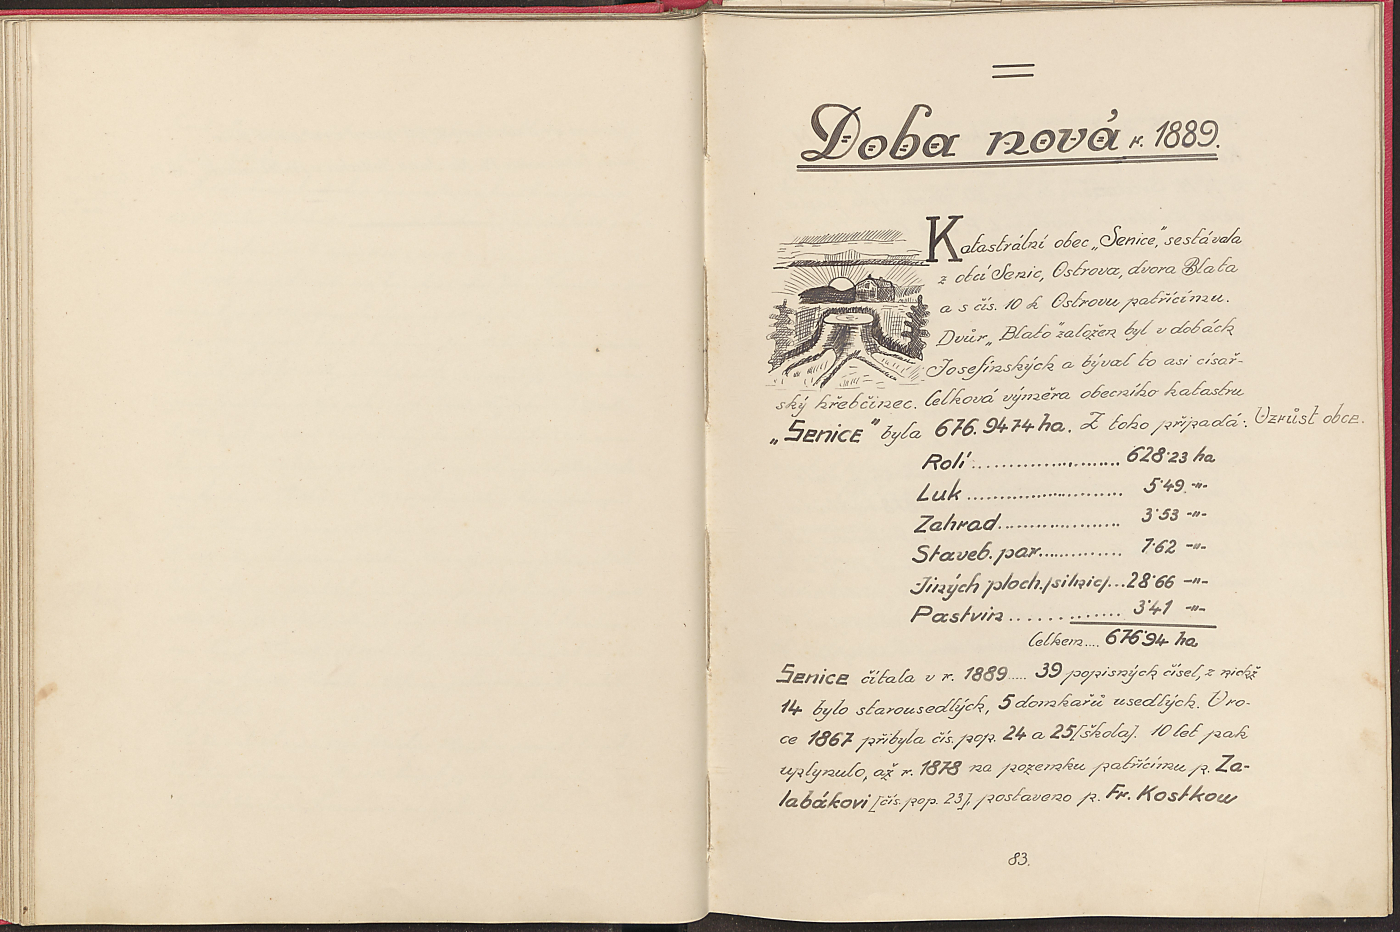 Doba nová r. 1889.
Katastrální obec „Senice", sestávala
z obcí Senic, Ostrova, dvora Blata
a s čís. 10 k Ostrovu patřícímu.
Dvůr „Blato" založen byl v dobách
Josefínských a býval to asi císař-
ský hřebčinec. Celková výměra obecního katastru
„Senice" byla 676.9474 ha. Z toho připadá:
Vzrůst obce.
Rolí .................... 628·23 ha
Luk ...................... 5·49 -"-
Zahrad.................. 3·53 -"-
Staveb. par............. 7·62 -"-
Jiných ploch./silnic/...28·66 -"-
Pastvin ............... 3·41 -"-
Celkem.... 676·94 ha
Senice čítala v r. 1889..... 39 popisných čísel, z nichž
14 bylo starousedlých, 5 domkařů usedlých. V ro-
ce 1867 přibyla čís. pop. 24 a 25 [škola]. 10 let pak
uplynulo, až r. 1878 na pozemku patřícímu p. Za-
labákovi [čís. pop. 23], postaveno p. Fr. Kostkou
83.